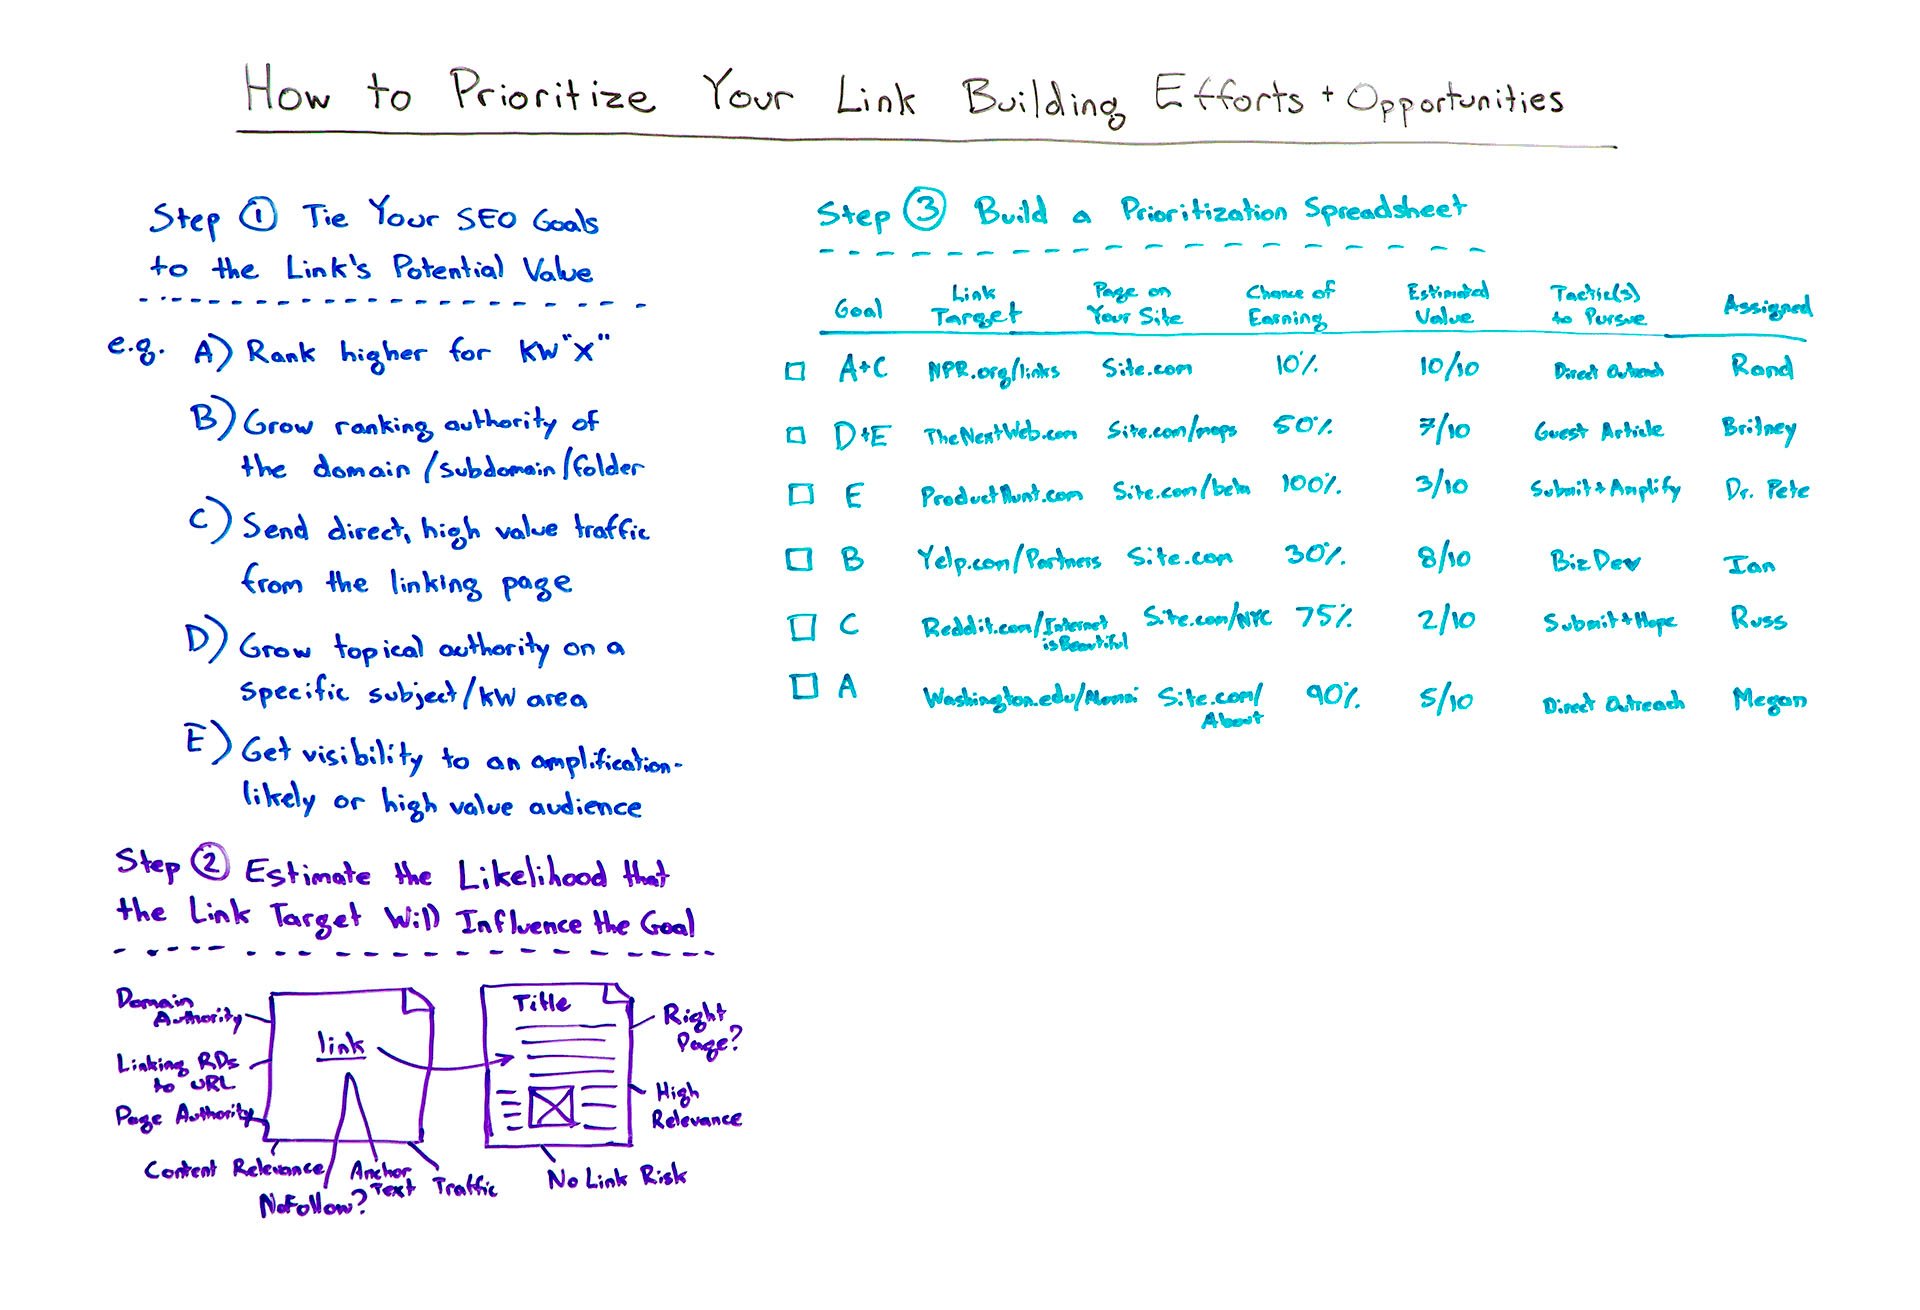 How to Prioritize Your Link Building Efforts + Opportunities
Step 1 Tie Your SEO Goals
to the Link's Potential Value
e.g. A) Rank higher for KW "X"
B) Grow ranking authority of
the domain/subdomain/folder
C) Send direct, high value traffic
from the linking page
D) Grow topical authority on a
specific subject/KW area
E) Get visibility to an amplification-
likely or high value audience
Step 2 Estimate the Likelihood that
the Link Target Will Influence the Goal
Domain
Authority
Linking RDs
to URL
Page Authority
Content Relevance
NoFollow?
Anchor
Text
Traffic
link
Title
Right
Page?
High
Relevance
No Link Risk
Step 3 Build a Prioritization Spreadsheet
Goal Link Target Page on Your Site Chance of Earning Estimated Value Tactic(s) to Pursue Assigned
A+C NPR.org/links Site.com 10% 10/10 Direct Outreach Rand
D+E TheNextWeb.com Site.com/maps 50% 7/10 Guest Article Britney
E ProductHunt.com Site.com/beta 100% 3/10 Submit + Amplify Dr. Pete
B Yelp.com/Partners Site.com 30% 8/10 BizDev Ian
C Reddit.com/Internet isBeautiful Site.com/NYC 75% 2/10 Submit + Hope Russ
A Washington.edu/Alumni Site.com/About 90% 5/10 Direct Outreach Megan